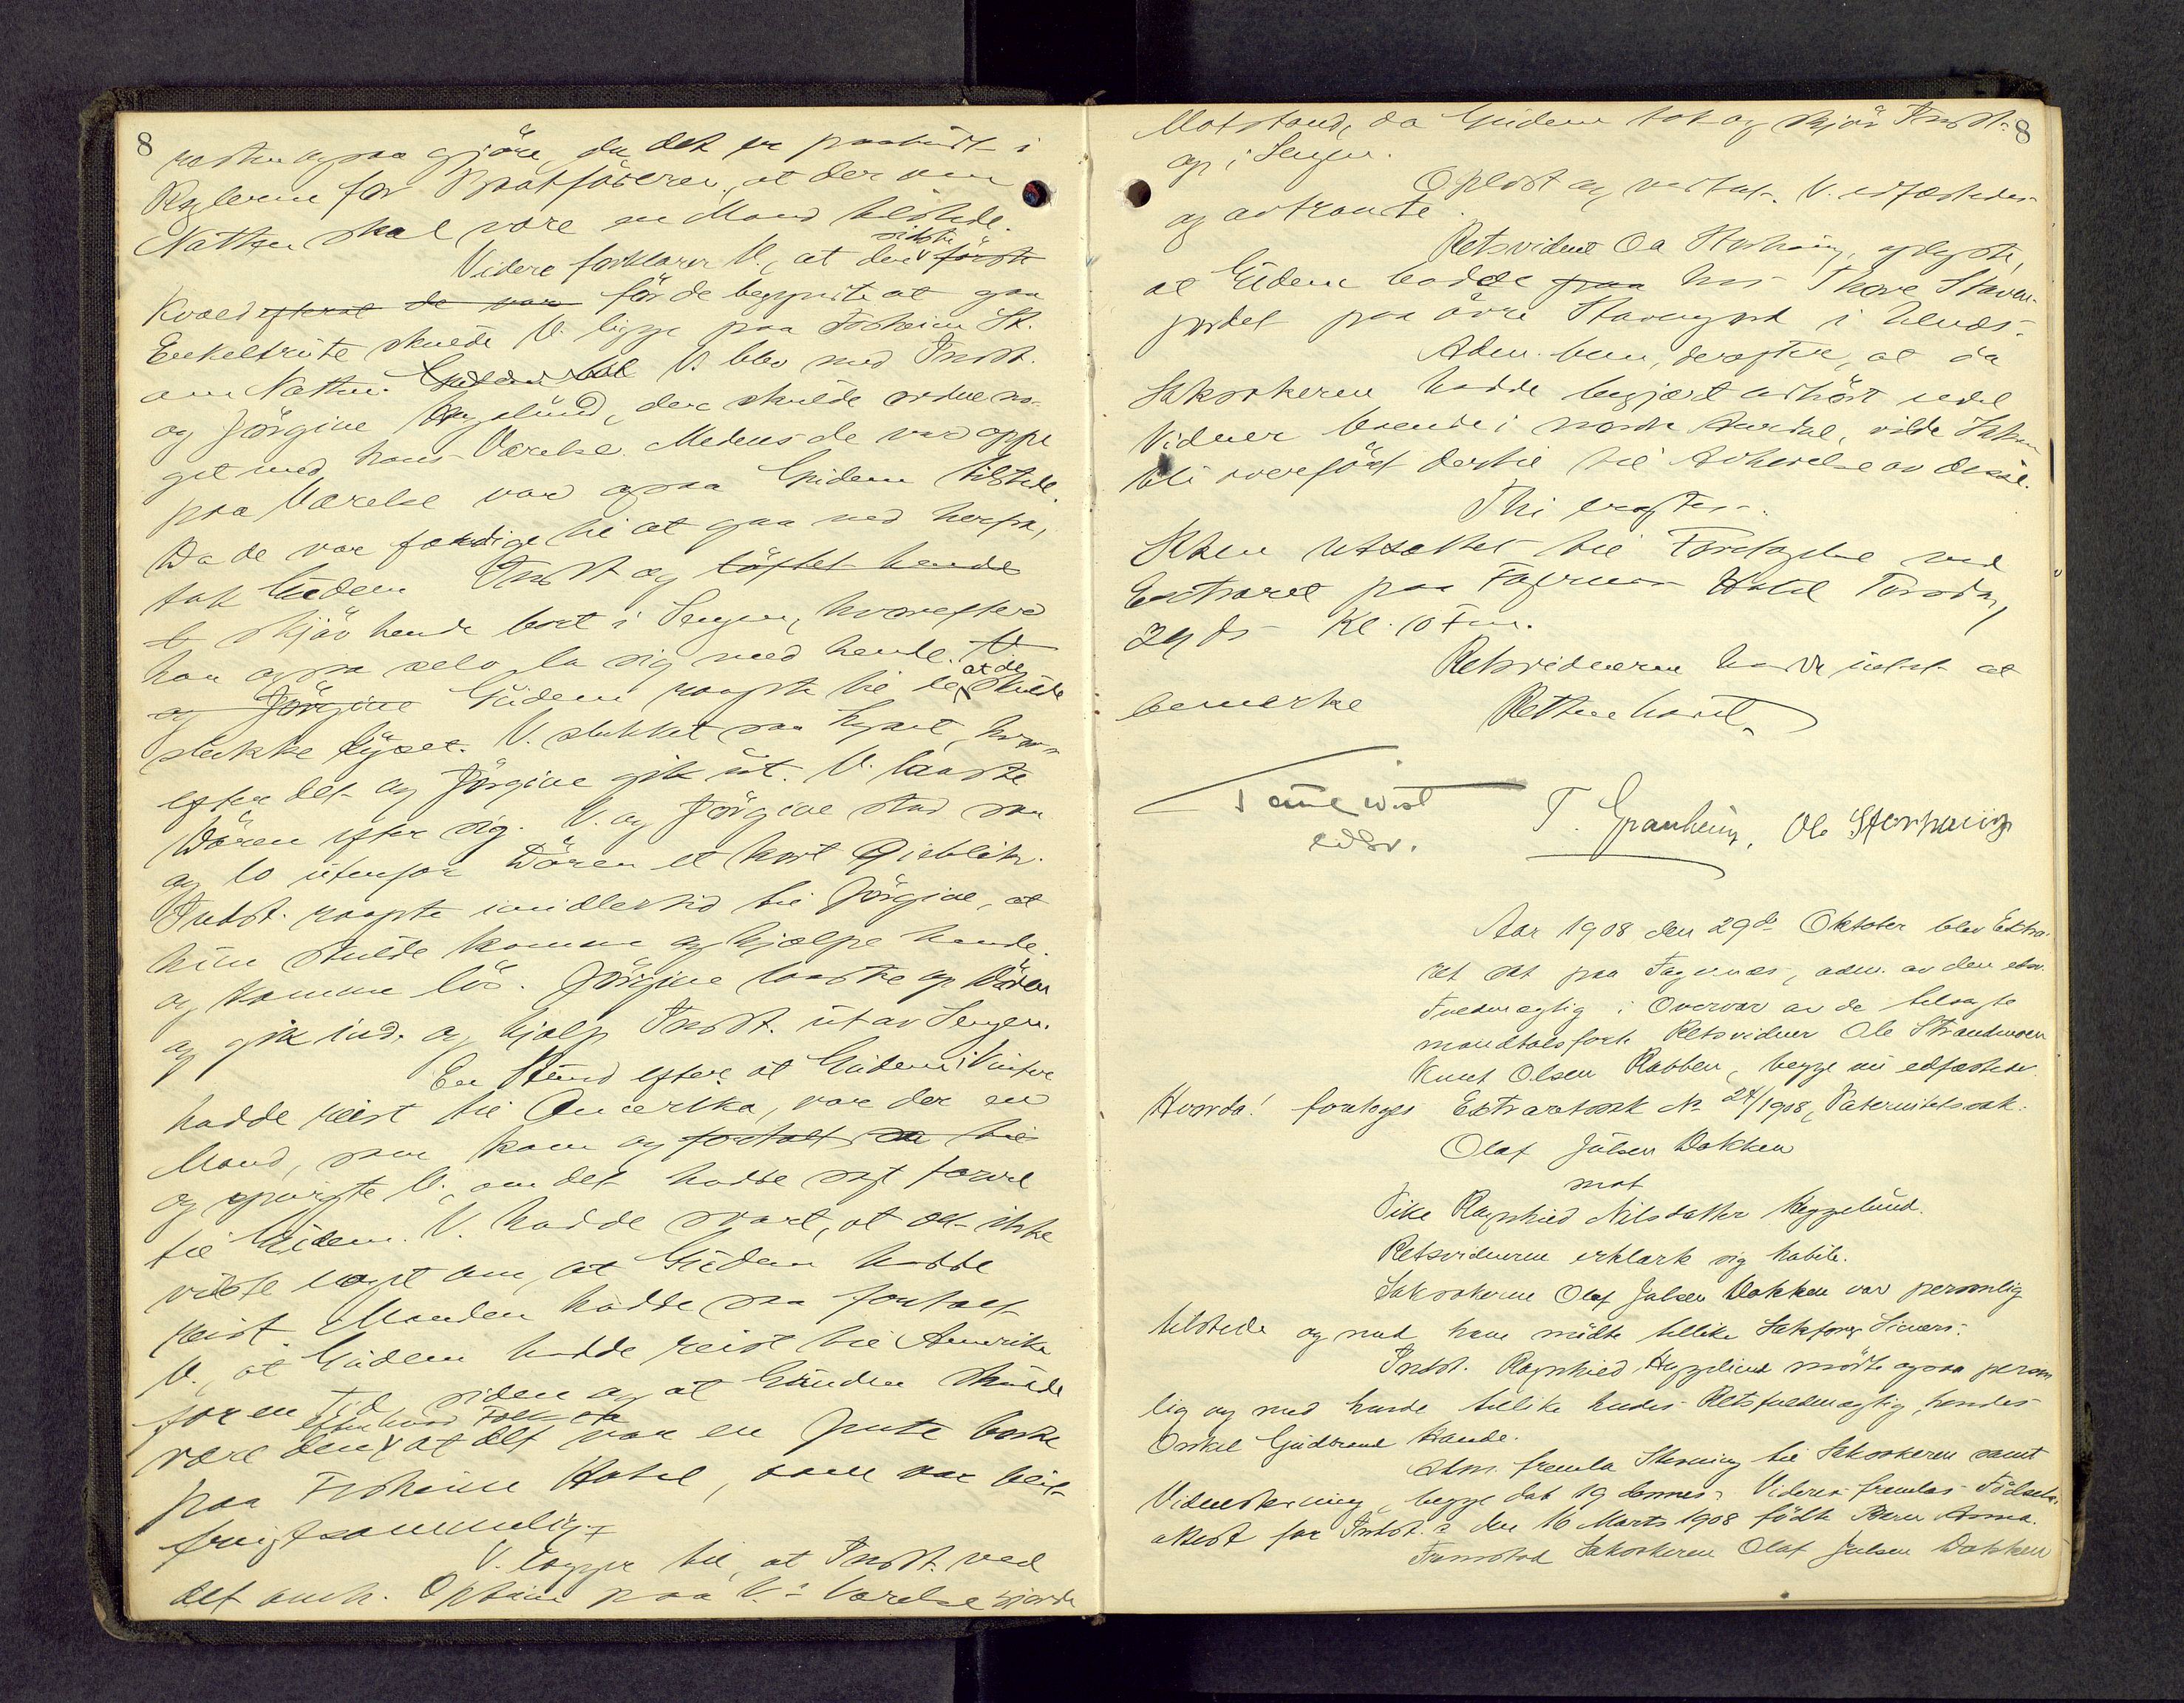 8
ogsaa gjöre, da det er paabudt i
Reglerne for at der om
Natten skal være en Mand tilstede.
Videre forklarer V., at den sidste första
Kvæld efterat de var för de begynte at gaa
Enkeltrute skulde V. ligge paa Fosheim St.
om Natten. V. blev med Indst.
og Jörgine Hegglund, der skulde ordne no-
get med hans Værelse. Medens de var oppe
paa Værelse var ogsaa Gudem tilstede.
Da de var færdige til at gaa ned herfra,
tok Gudem Indst og löftet hende
skjöv hende bort i Sengen, hvorefter
han ogsaa selv la sig med hende.
og Jörgine Gudem raapte til at de skulde
slukke lyset. V. slukket saa lyset, hvor-
efter det og Jörgine gik ut. V. laaste
Dören efter sig. V. og Jörgine stod saa
og lo utenfor Dören et kort Öieblik.
Indst. raapte imidlertid til Jörgine, at
hun skulde komme og hjælpe hende
og komme lös. Jörgine laaste op Dören
og gik ind og hjalp Indst. ut av Sengen.
En Stund efter at Gudem i Vinter
hadde reist til Amerika, var der en
Mand, som kom og fortalt til
og spurgte V. om det hadde sagt farvel
til Gudem. V. hadde svart, at det ikke
visste noget om, at Gudem hadde
reist. Manden hadde saa fortalt
V., at Gudem hadde reist til Amerika
for en Tid siden og at Grunden skulde
være den, efter hvad Folk sa at det var en Jente borte
paa Fosheim Hotel, som var blit
frugtsommelig.
V. lægger til, at Indst. ved
det omh. Optrin paa V.s Værelse gjorde
8
Motstand, da Gudem tok og skjöv Indst.
op i Sengen.
Oplæst og vedtat. V. edfæstedes
og avtraadte.
Retsvidnet Ole Storhaug, oplyste,
at Gudem hadde paa hos Thore Staven-
jordet paa övre Stavengard i Ulnæs.
Adm. bem. derefter, at da
Saksökeren hadde begjært avhört endel
Vidner boende i nordre Aurdal, vilde Saken
bli overfört dertil til Avhörelse av disse.
Thi eragtes:
Saken utsættes til Foretagelse ved
Extraret paa Fagernes Hotel Torsdag
29 ds Kl. 10 Fm.
Retsvidnerne hadde intet at
bemerke Retten hævet
edsv.
T. Granheim, Ole Storhaug
Aar 1908 den 29de Oktober blev Extra-
ret sat paa Fagernæs, adm. av den edsv.
Fuldmægtig i Overvær av de tilsagte
mandtalsförte Retsvidner Ole Strandmoen
Knut Olsen Rabben, begge nu edfæstede.
Hvorda! foretoges Extraretssak No 24/1908, Paternitetssak:
Olaf Julsen Dokken
mot
Pike Ragnhild Nilsdatter Hegglund.
Retsvidnerne erklærte sig habile.
Saksökeren Olaf Julsen Dokken var personlig
tilstede og med ham mödte tillike Sakförer
Indst. Ragnhild Hegglund mödte ogsaa person
lig og med hende tillike hendes Retsfuldmægtig, hendes
Onkel Gudbrand Hande.
Adm. fremla Stevning til Saksökeren samt
Vidnestevning, begge dat 19 dennes. Videre fremlas Födsels-
attest for Indst.s den 16 Marts 1908 födte Barn Anna.
Fremstod Saksökeren Olaf Julsen Dokken